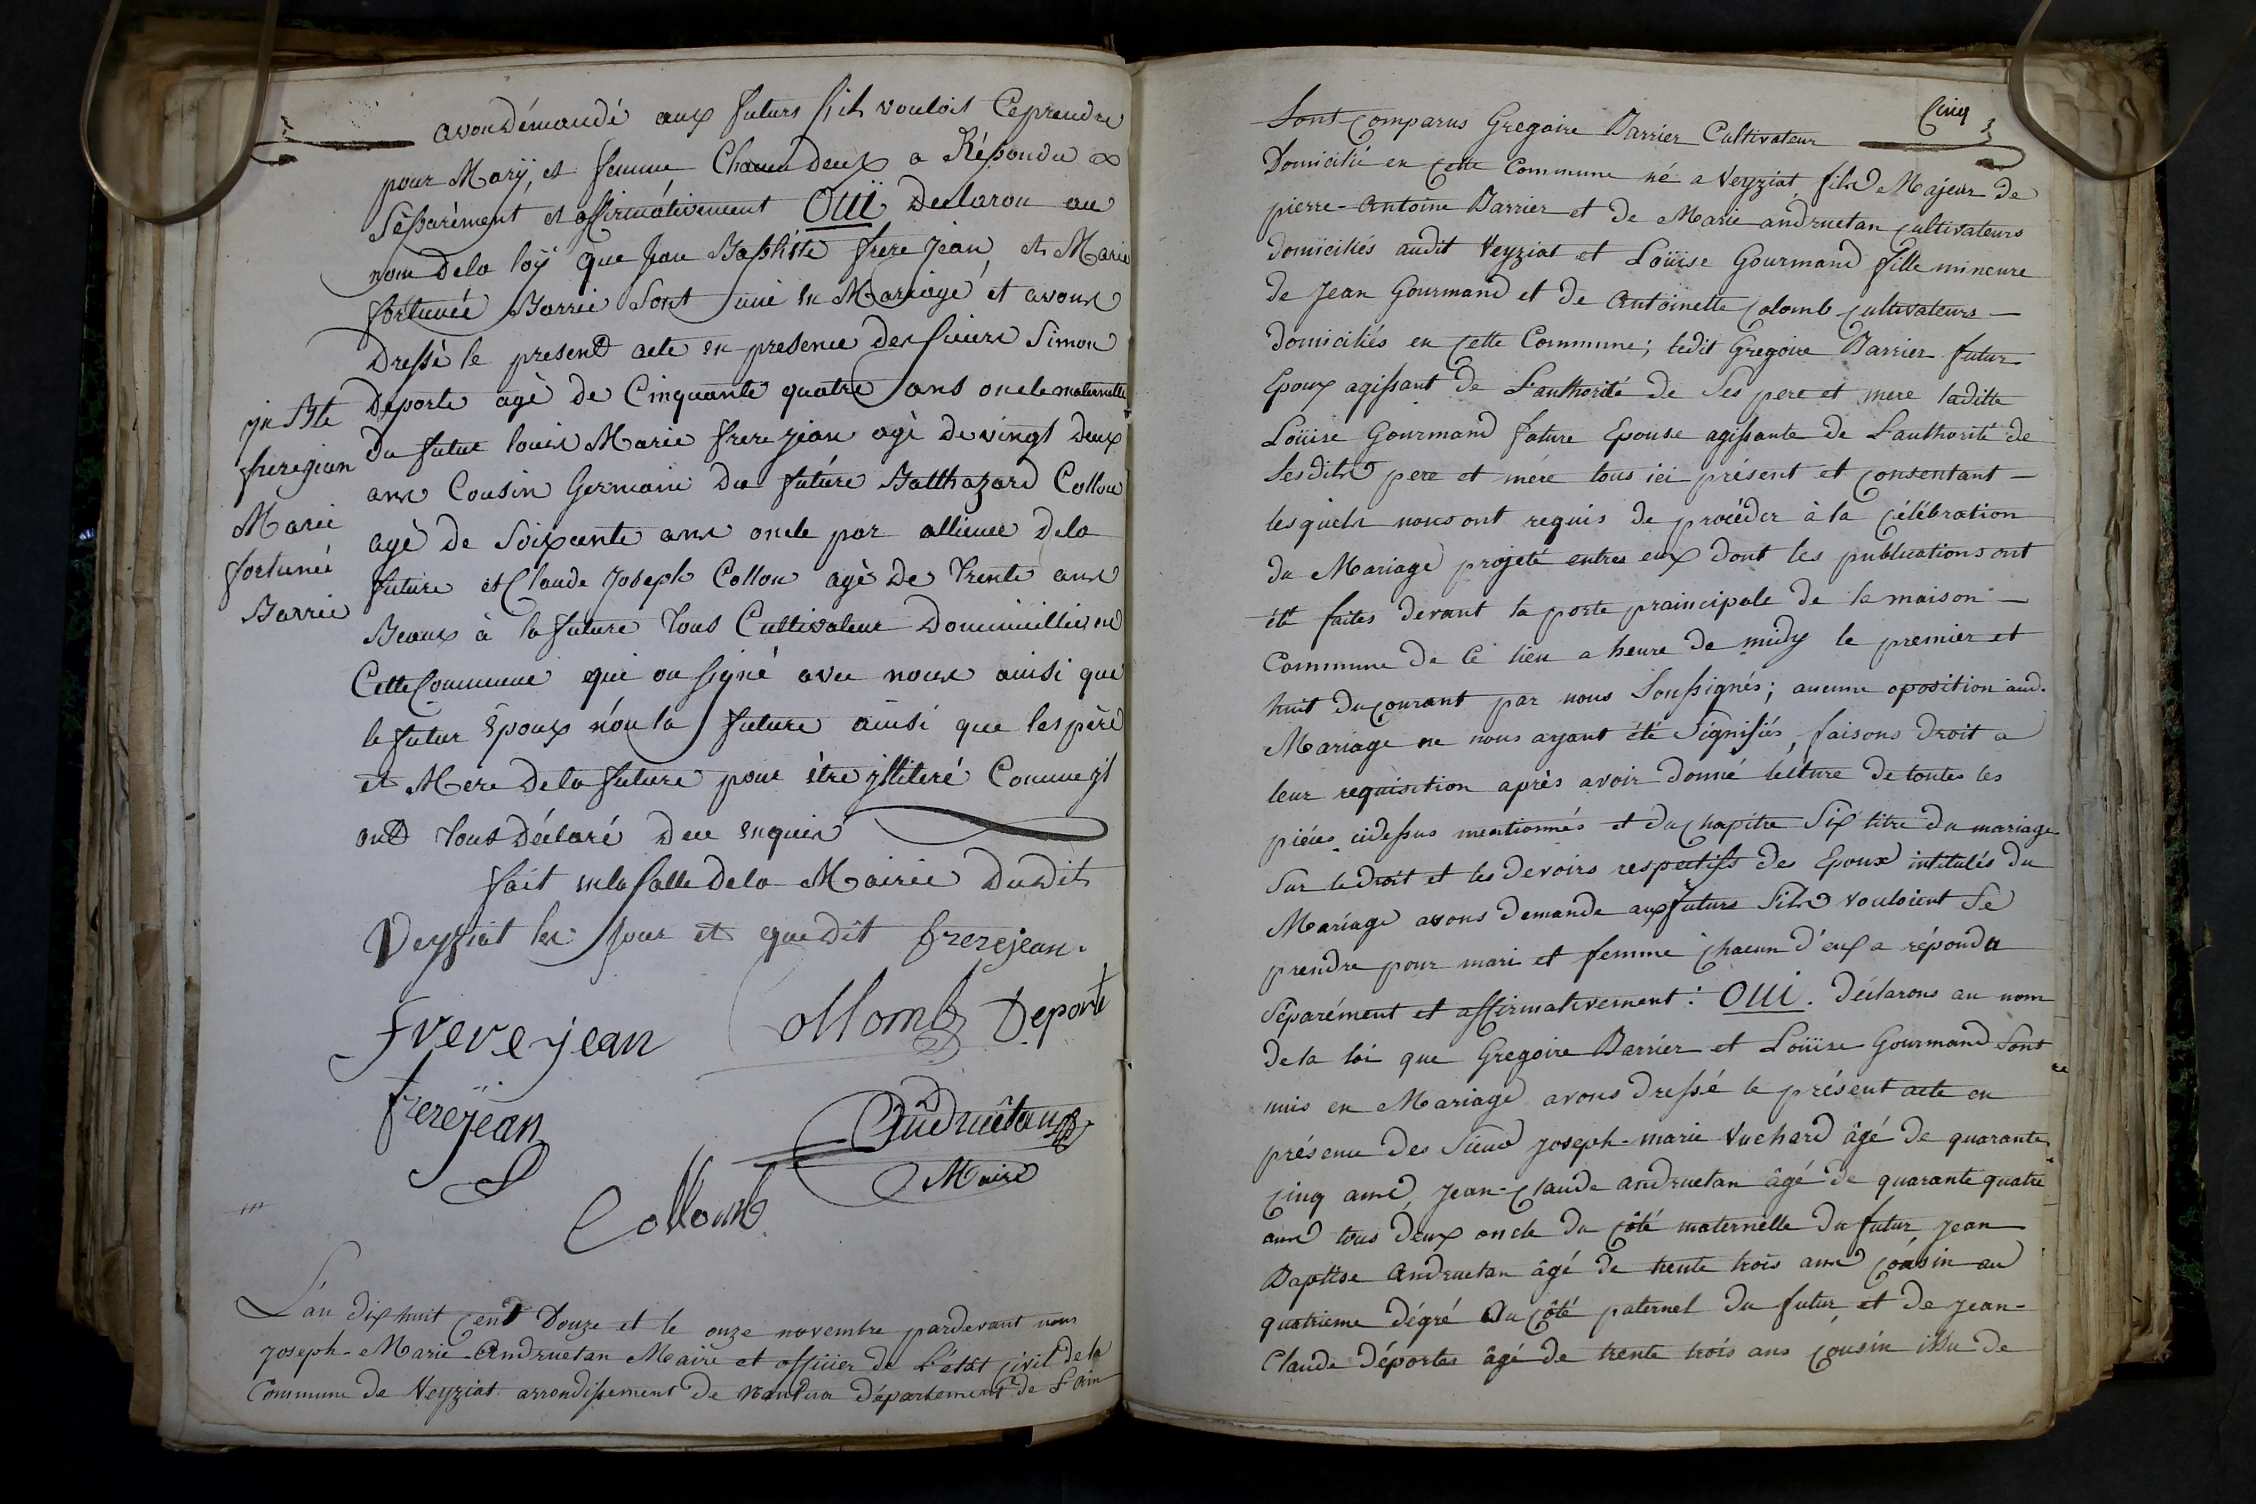 avon démandé aux futurs s'ils voulois Ceprendre
pour Marÿ, et femme Chacun deux a Répondu
Séparément et affirmátivement OUÏ Declaron au
nom dela loÿ que Jean Baptiste frere jean, et Marie
fortunée Barrié Sont unie en Mariage et avons
Dressé le present acte en presence des sieurs Simon
Deporte agé de Cinquante quatre ans oncle maternelle
Du futur louis Marie frere jean agé de vingt deux
ans Cousin Germain du future Balthazard Collon
agé de Soixante ans oncle par alience dela
future et Claude Joseph Collon agé de trente ans
Beaux à la future tous Cultivateur Domicilliés en
Cette Commune qui on signé avec nous ainsi que
le futur époux nón la future ainsi que les père
et Mere dela future pour être jlliteré Comme jl
ont tous Déclaré Dee enquis
fait en la salle dela Mairie Dudit
Veyziat les jour et que dît frerejean.
jn Bte
frerejean
Marie
fortunée
Barrié
Frerejean Collomb Deporte
frerejean Andruétan
Maire
Collomb
L'an dix huit cent Douze et le onze novembre pardevant nous
joseph-Marie-Andruetan Maire et officier de L'état civil de la
Commune de Veyziat arrondissement de nantua département de L'ain
Cinq
Sont Comparus Gregoire Barrier Cultivateur
Domicilié en Cette Commune né a Veyziat fils Majeur de
pierre-Antoine Barrier et de Marie andruetan cultivateurs
domiciliés audit Veyziat et Loüise Gourmand fille mineure
de Jean Gourmand et de Antoinette colomb cultivateurs
domiciliés en cette Commune; ledit Gregoire Barrier futur
Epoux agissant de L'authorité de ses pere et mere laditte
Loüise Gourmand future Epouse agissante de L'authorité de
sesdits pere et mére tous ici présent et consentant
lesquels nous ont requis de procéder à la célébration
du Mariage projeté entres eux dont les publications ont
été faites devant la porte praincipale de la maison
Commune de Ce lieu a heure de midy le premier et
huit Du courant par nous soussignés; aucune oposition aud.
Mariage ne nous ayant été signifiés, faisons droit a
leur requisition après avoir donné lecture de toutes les
piéces cidessus mentionnés et du chapitre Six titre du mariage
Sur le droit et les devoirs respectifs des Epoux intitulés du
Mariage avons demande aux futurs s'ils vouloient se
prendre pour mari et femme chacun d'eux a répondu
Séparément et affirmativement: OUI. Déclarons au nom
de la loi que Gregoire Barrier et Loüise Gourmand sont
unis en Mariage avons dressé le présent acte en
présence des sieurs joseph-marie Vuchard âgé de quarante
cinq ans, jean-claude andruetan âgé de quarante quatre
ans tous deux oncle du côté maternelle du futur jean
Baptise Andruetan âgé de trente trois ans coúsin au
quatrieme dégré du côté paternel du futur et de jean-
Claude déportes âgé de trente trois ans coúsin issu de